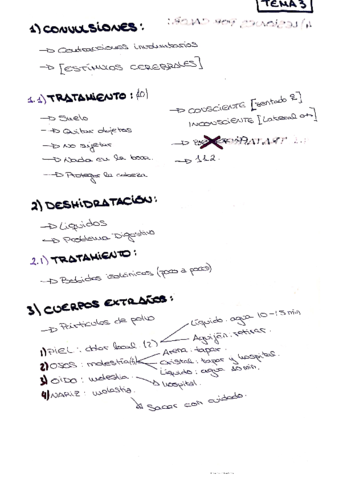 TEMA 3
1) CONVULSIONES:
→ Contracciones involuntarias
→ [ESTÍMULOS CEREBRALES]
1.1) TRATAMIENTO:
→ Suelo
→ Quitar objetos
→ No sujetar
→ Nada en la boca.
→ Proteger la cabeza
→ CONSCIENTE [sentado]
INCONSCIENTE [Lateral]
→ 112.
2) DESHIDRATACIÓN:
→ Líquidos
→ Problema Digestivo
2.1) TRATAMIENTO:
→ Bebidas isotónicas (poco a poco)
3) CUERPOS EXTRAÑOS:
→ Partículas de polvo
1) PIEL: (2)
Líquido: agua 10-15 min
Aguijón: retirar.
2) OJOS: molestia
Arena: tapar.
Cristal: tapar y hospital.
Líquido: agua min.
3) OIDO: molestia
→ hospital.
4) NARIZ: molestia.
→ Sacar con cuidado.